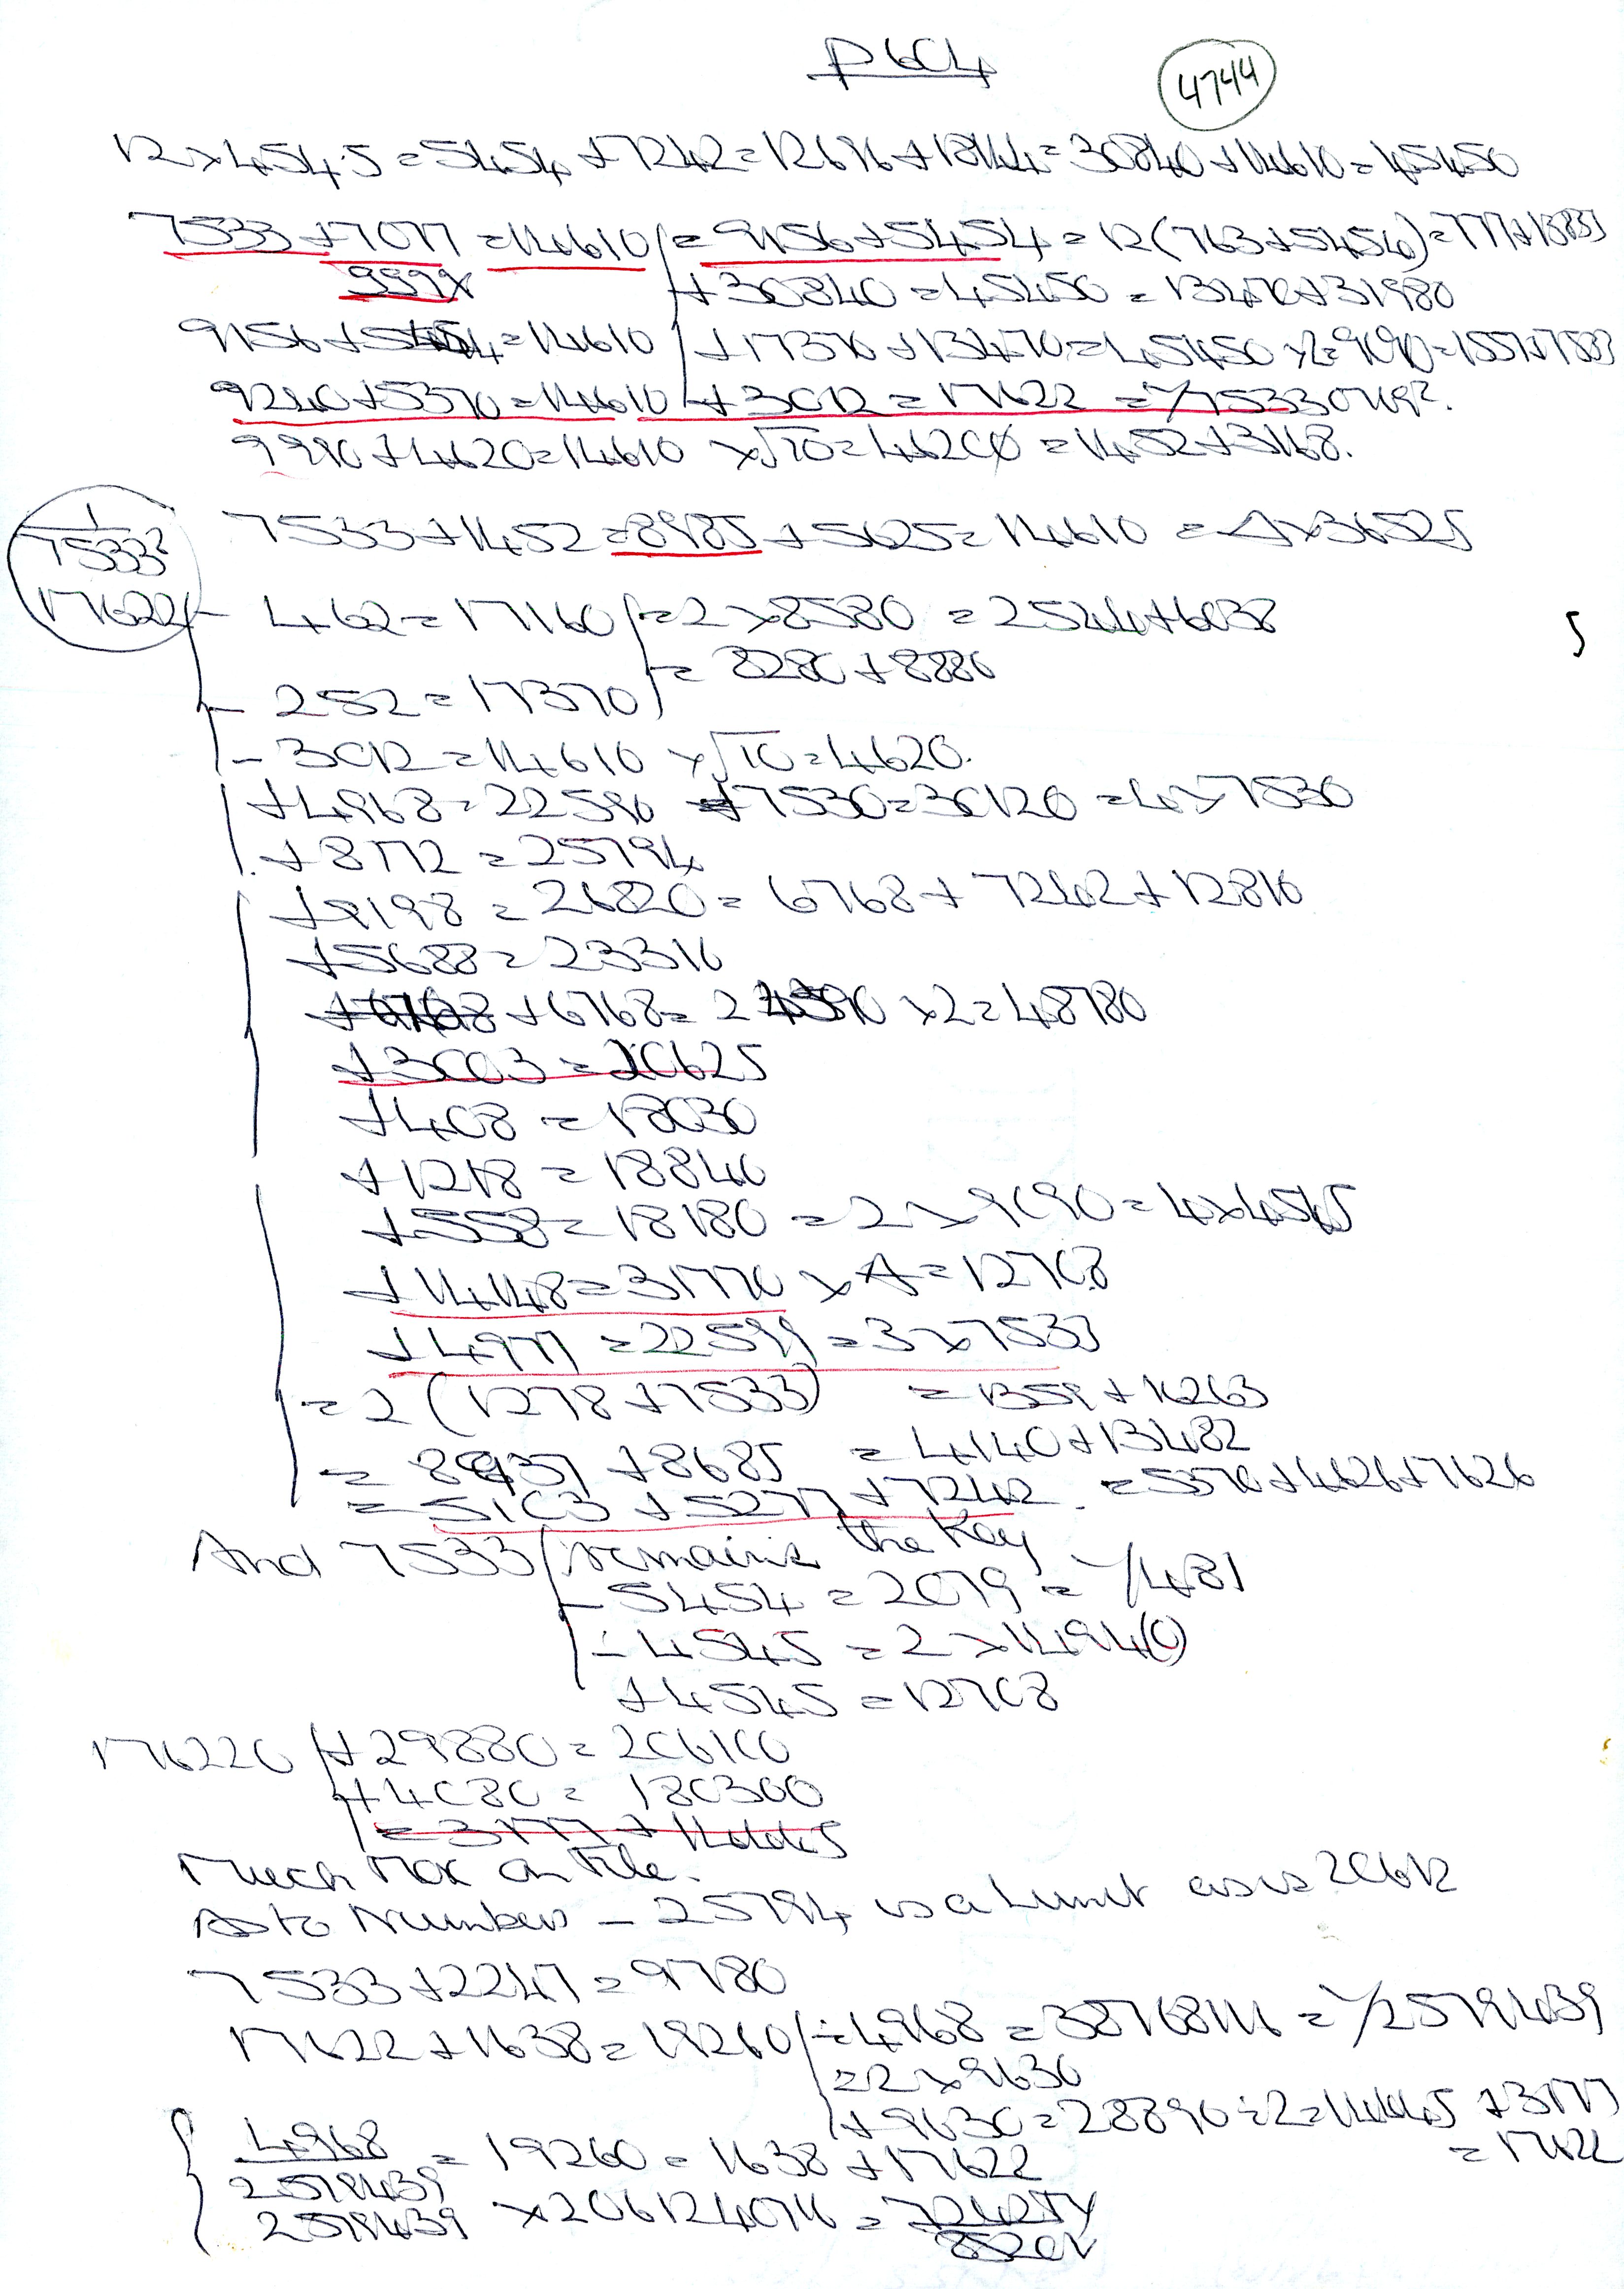 P6C4
4744
12 × 454.5 = 5454 + 7242 = 12696 + 18144 = 30840 + 14610 = 45450
7533 + 7077 = 14610 = 9156 + 5454 = 12(763 + 5454) =
999
+ 30840 = 45450 = 13470 + 31980
9156 + 5454 = 14610 + 17370 + 13470 = 45450 × 2 = 9090 = 1557 + 7533
9240 + 5370 = 14610 + 3012 = 17622 = 1/7533
9990 + 4620 = 14610 × √10 = 46200 = 1452 + 3168.
1
7533²
17622
7533 + 1452 = 8985 + 5625 = 14610 = × 36525
- 462 = 17160 = 2 × 8580 = 2544 + 6038
= 8280 + 8880
- 252 = 17370
- 3012 = 14610 × √10 = 4620.
+ 4968 = 22590 + 7530 = 30120 = 4 × 7530
+ 8172 = 25794
+ 9198 = 26820 = 6768 + 7242 + 12810
+ 5688 = 23310
+ 6768 = 24390 × 2 = 48780
+ 3003 = 20625
+ 408 = 18030
+ 1218 = 18840
+ 558 = 18180 = 2 × 9090 = 4 × 4545
+ 14148 = 31770 × = 12708
+ 4977 = 22599 = 3 × 7533
= 2(1278 + 7533) = 1359 + 16263
= 8937 + 8685 = 4140 + 13482
= 5103 + 5277 + 7242 = 5370 + 4626 + 7626
And 7533 remains the Key
- 5454 = 2079 = 1/481
- 4545 = 2 × 1494(0)
+ 4545 = 12708
176220 + 29880 = 206100
+ 4080 = 180300
= 3177 + 14445
Much on File.
As to Numbers - 25794 is a Limit as is 20612
7533 + 2247 = 9780
17622 + 1638 = 19260 ÷ 4968 = 387681116 = 1/25794439
= 2 × 9630
+ 9630 = 28890 ÷ 2 = 14445 + 3177
= 17622
4968
25794439
= 19260 = 1638 + 17622
25794439 × 2061240